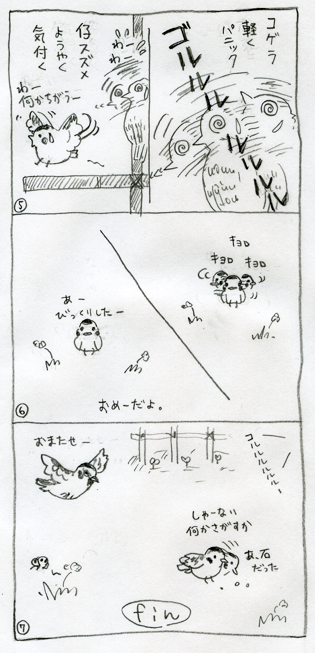 コゲラ
軽く
パニック
ゴルルルルルル
わー
わー
仔スズメ
ようやく
気付く
わー
何かちがうー
⑤
キョロ
キョロ
キョロ
あー
びっくりしたー
おめーだよ。
⑥
おまたせー
コルルルルルルー
しゃーない
何かさがすか
あ、石
だった
fin
⑦